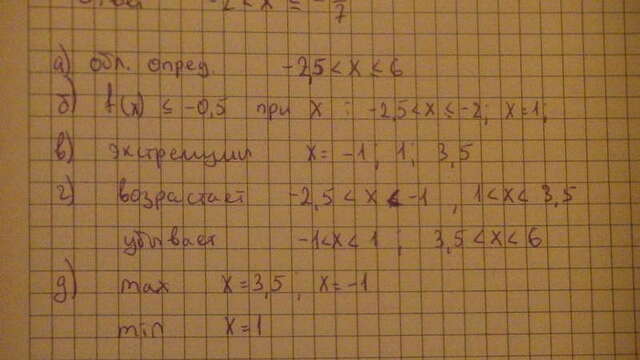 -2 < x ≤ -5/7
а) обл. опред. -2,5 < x ≤ 6
б) f(x) ≤ -0,5 при x : -2,5 < x ≤ -2; x = 1;
в) экстремumы x = -1; 1; 3,5
г) возрастает -2,5 < x < -1, 1 < x < 3,5
убывает -1 < x < 1; 3,5 < x < 6
д) max x = 3,5; x = -1
min x = 1